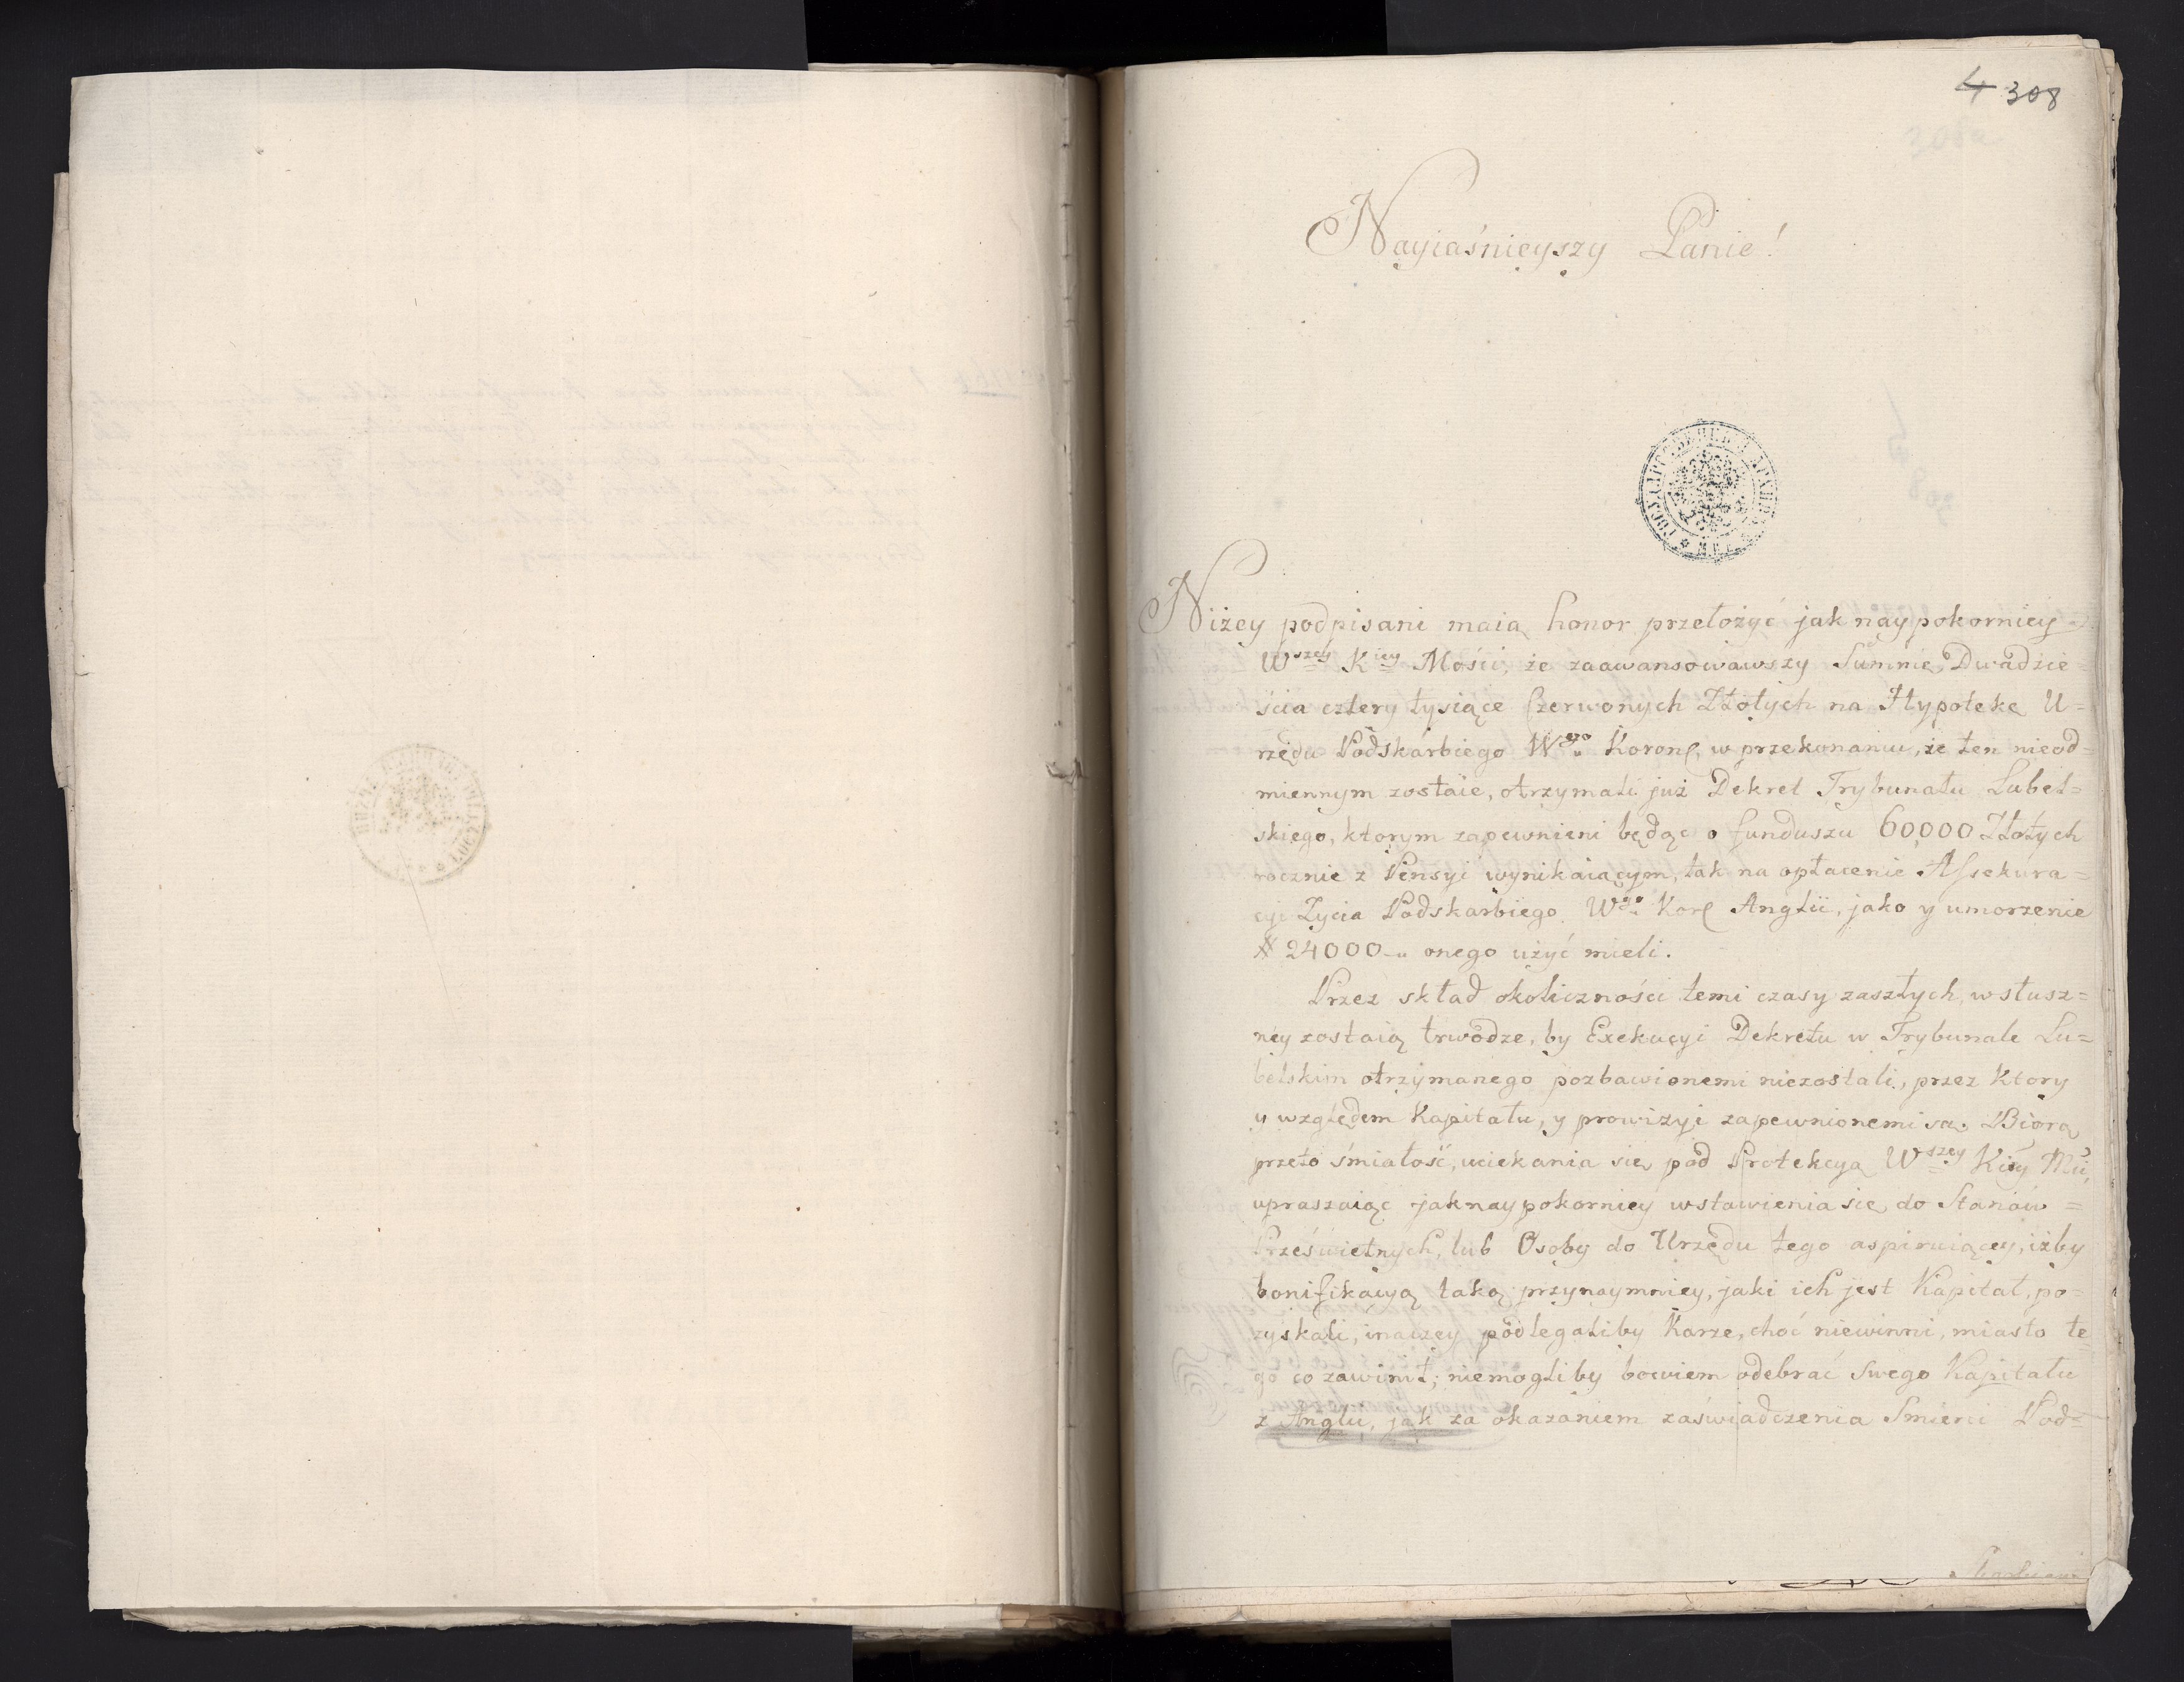 4 308
Nayiaśnieyszy Panie!
ГОСУДАРСТВЕННЫЙ АРХИВ
Niżey podpisani maią honor przełożyć jak naypokorniey
Wszey Kiey Mości, że zaawansowawszy Summę Dwadzie=
ścia cztery tysiące Czerwonych Złotych na Hypotekę U=
rzędu Podskarbiego Wgo Koronę, w przekonaniu, że ten nieod=
miennym zostaie, otrzymali już Dekret Trybunału Lubel=
skiego, ktorym zapewnieni będąc o funduszu 60,000 Złotych
rocznie z Pensyi wynikaiącym, tak na opłacenie Assekura=
cyi Życia Podskarbiego Wgo Kor Anglii, jako y umorzenie
# 24000 onego użyć mieli.
Przez skład okoliczności temi czasy zaszłych, w słusz=
ney zostaią trwodze, by Exekucyi Dekretu w Trybunale Lu=
belskim otrzymanego pozbawionemi niezostali, przez ktory
y względem Kapitału, y prowizyi zapewnionemi są. Biorą
przeto śmiałość, uciekania się pod Protekcyą Wszey Kiey Mci,
upraszaiąc jaknaypokorniey wstawienia się do Stanow=
Prześwietnych, lub Osoby do Urzędu tego aspiruiącey, iżby
bonifikacyą taką przynaymniey, jaki ich jest Kapitał, po=
zyskali, inaczey podlegaliby Karze, choć niewinni, miasto te=
go co zawinił; niemogliby bowiem odebrać Swego Kapitału
z Anglii, jak za okazaniem zaświadczenia Smierci Pod=